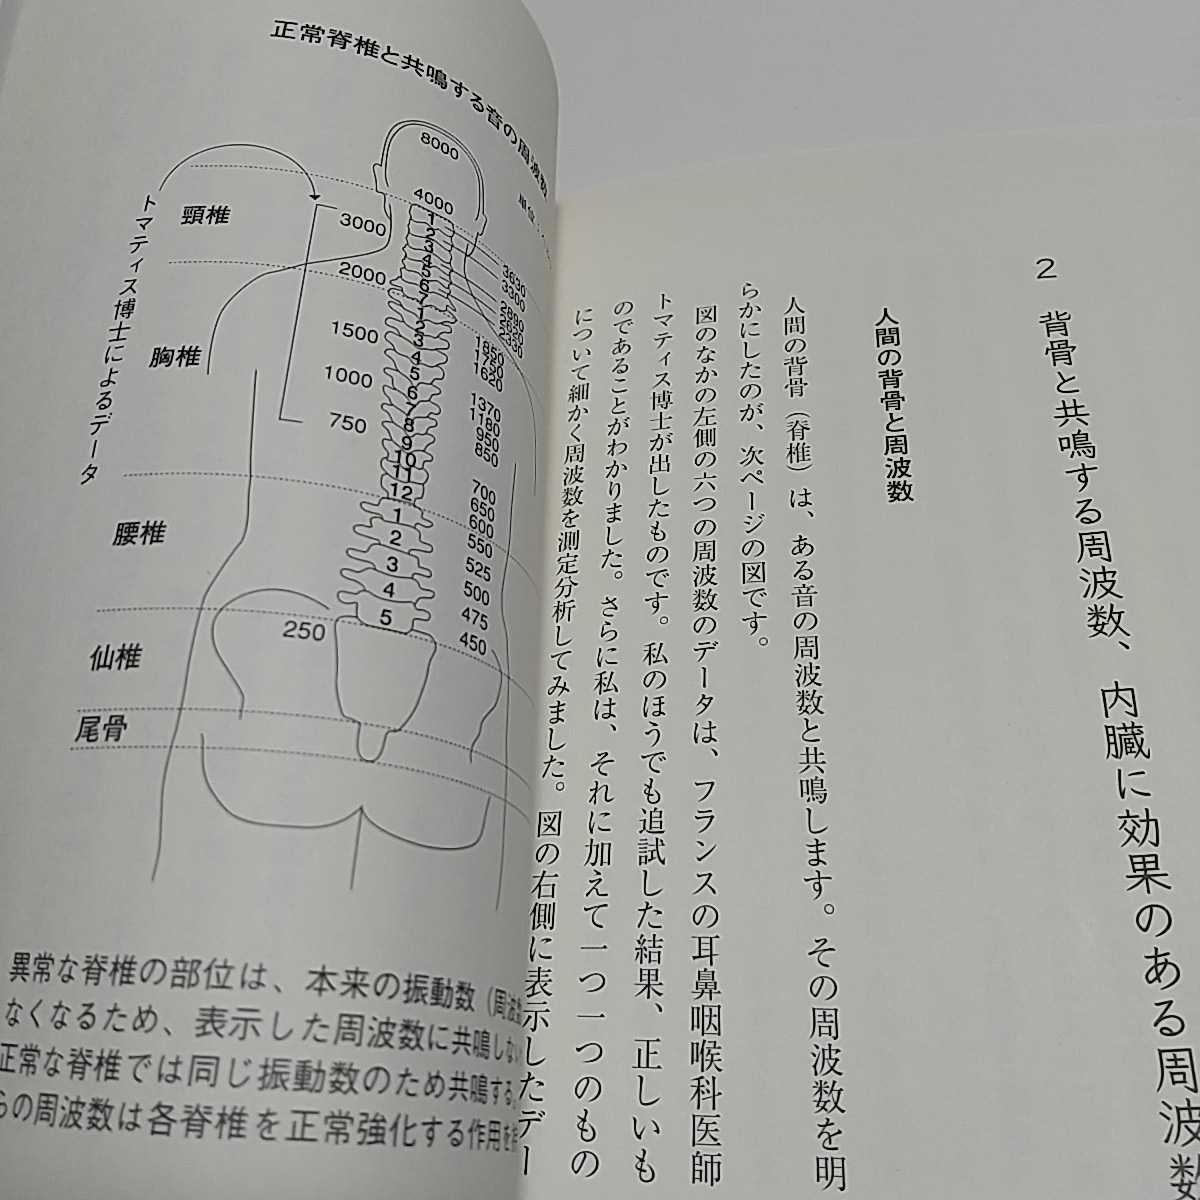 2 背骨と共鳴する周波数、内臓に効果のある周波数
人間の背骨と周波数
人間の背骨（脊椎）は、ある音の周波数と共鳴します。その周波数を明
らかにしたのが、次ページの図です。
図のなかの左側の六つの周波数のデータは、フランスの耳鼻咽喉科医師
トマティス博士が出したものです。私のほうでも追試した結果、正しいも
のであることがわかりました。さらに私は、それに加えて一つ一つのもの
について細かく周波数を測定分析してみました。図の右側に表示したデー
正常脊椎と共鳴する音の周波数
単位
8000
4000
3000
2000
1500
1000
750
250
トマティス博士によるデータ
頸椎
胸椎
腰椎
仙椎
尾骨
1
2
3
4
5
6
7
1
2
3
4
5
6
7
8
9
10
11
12
1
2
3
4
5
3630
3300
2890
2620
2330
1850
1750
1620
1370
1180
950
850
700
650
600
550
525
500
475
450
異常な脊椎の部位は、本来の振動数（周波数
なくなるため、表示した周波数に共鳴しない
正常な脊椎では同じ振動数のため共鳴する。
らの周波数は各脊椎を正常強化する作用を